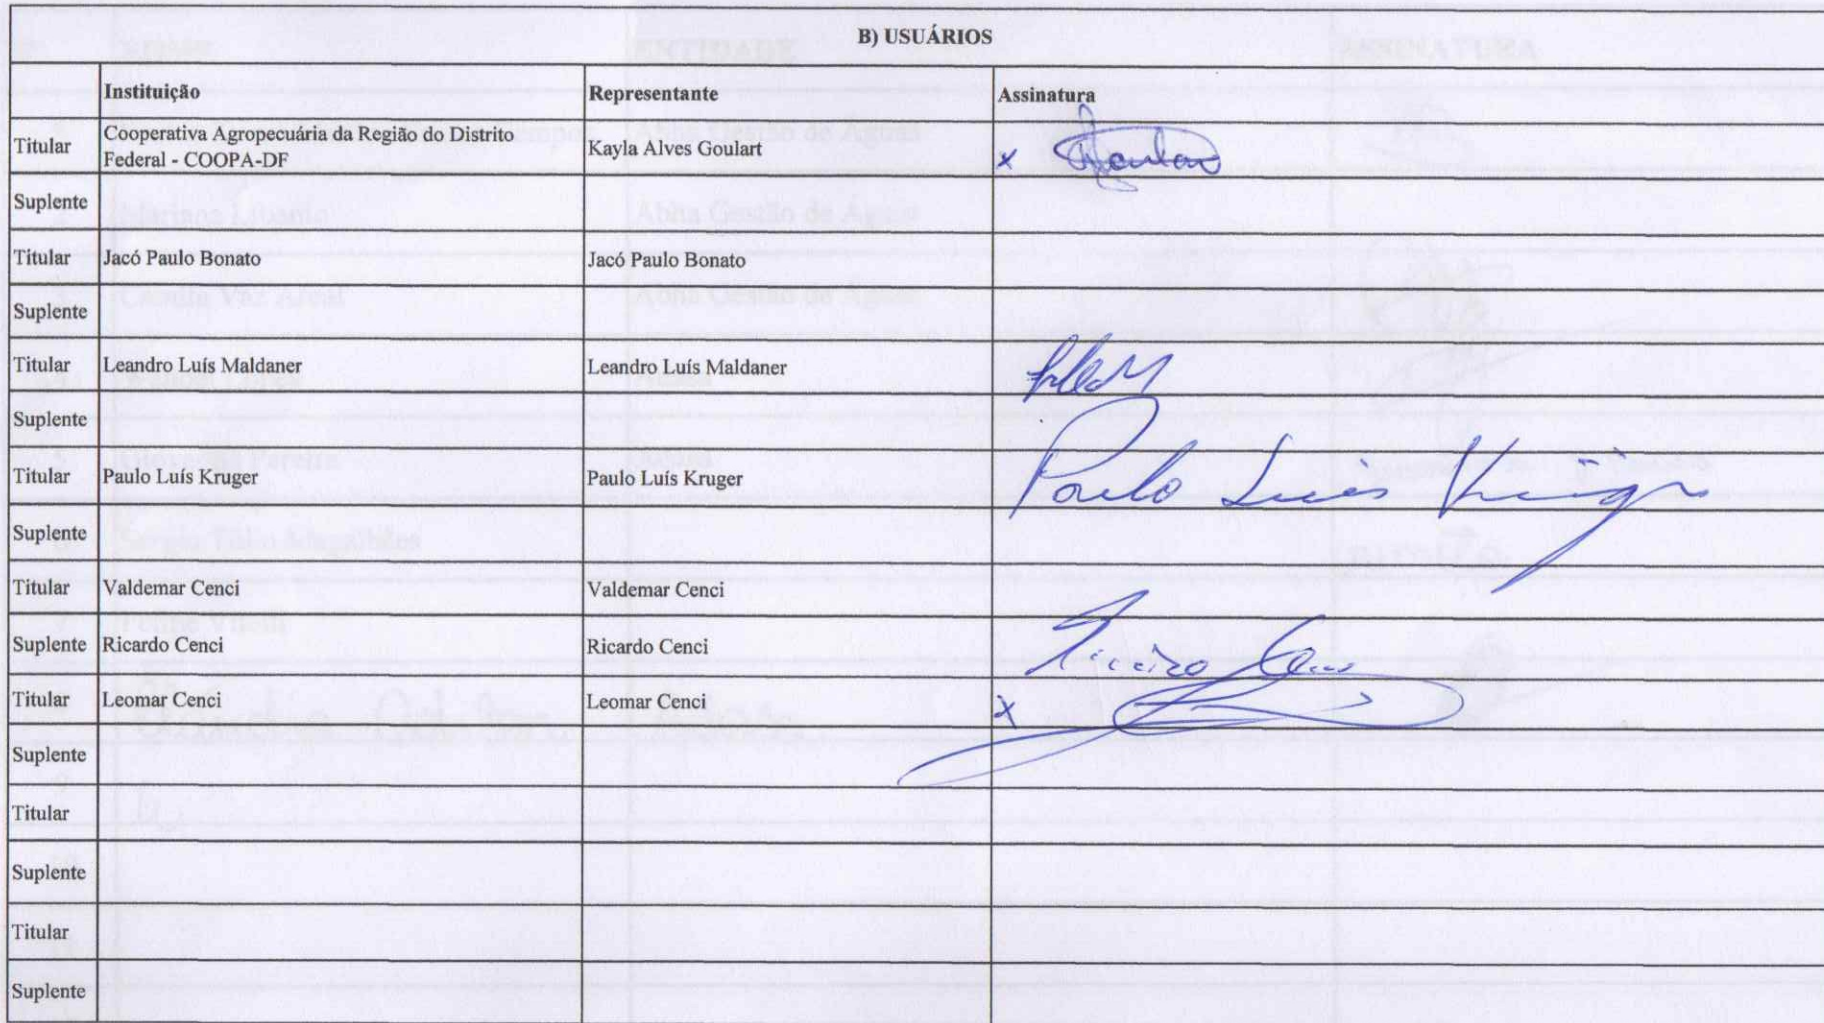 B) USUÁRIOS
Instituição Representante Assinatura
Titular Cooperativa Agropecuária da Região do Distrito
Federal - COOPA-DF Kayla Alves Goulart x Goulart
Suplente
Titular Jacó Paulo Bonato Jacó Paulo Bonato
Suplente
Titular Leandro Luís Maldaner Leandro Luís Maldaner
Suplente
Titular Paulo Luís Kruger Paulo Luís Kruger Paulo Luis Kruger
Suplente
Titular Valdemar Cenci Valdemar Cenci
Suplente Ricardo Cenci Ricardo Cenci
Titular Leomar Cenci Leomar Cenci x
Suplente
Titular
Suplente
Titular
Suplente